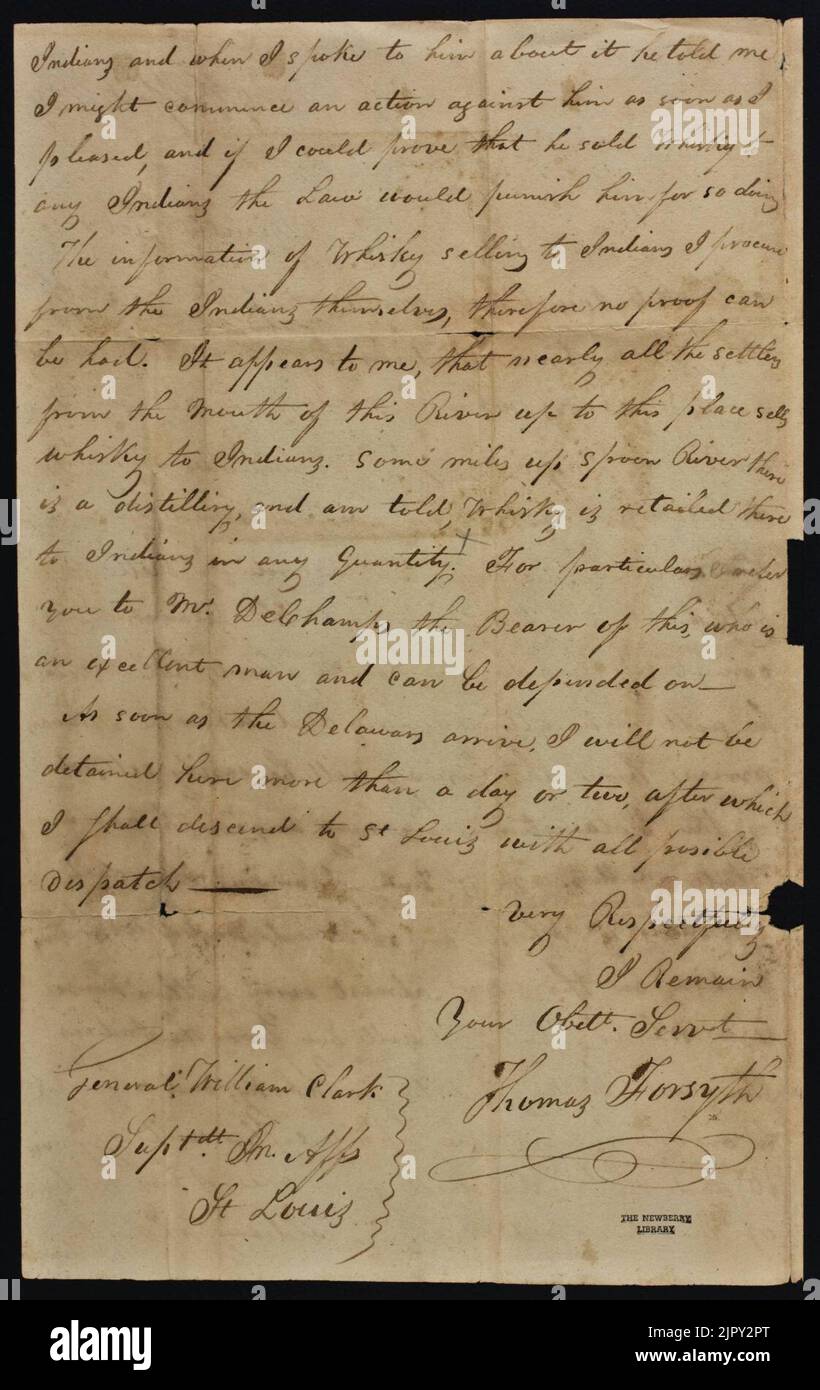 Indians and when I spoke to him about it he told me
I might commence an action against him as soon as I
pleased, and if I could prove that he sold Whisky to
any Indians the Law would punish him for so doing
The information of Whisky selling to Indians I procure
from the Indians themselves, therefore no proof can
be had. It appears to me, that nearly all the settlers
from the Mouth of this River up to this place sells
whisky to Indians. Some miles up Spoon River there
is a distillery, and am told, Whisky is retailed there
to Indians in any Quantity. For particulars refer
you to Mr. DelChamps the Bearer of this, who is
an excellent man and can be depended on—
As soon as the Delawars arrive, I will not be
detained here more than a day or two, after which
I shall descend to St Louis with all possible
dispatch——
Very Respectfully
I Remain
Your Obett. Servt—
Thomas Forsyth
General William Clark
Supt dt. In. Affs
St Louis
THE NEWBERRY
LIBRARY
a alamy
alamy
Image ID: 2JPY2PT
www.alamy.com